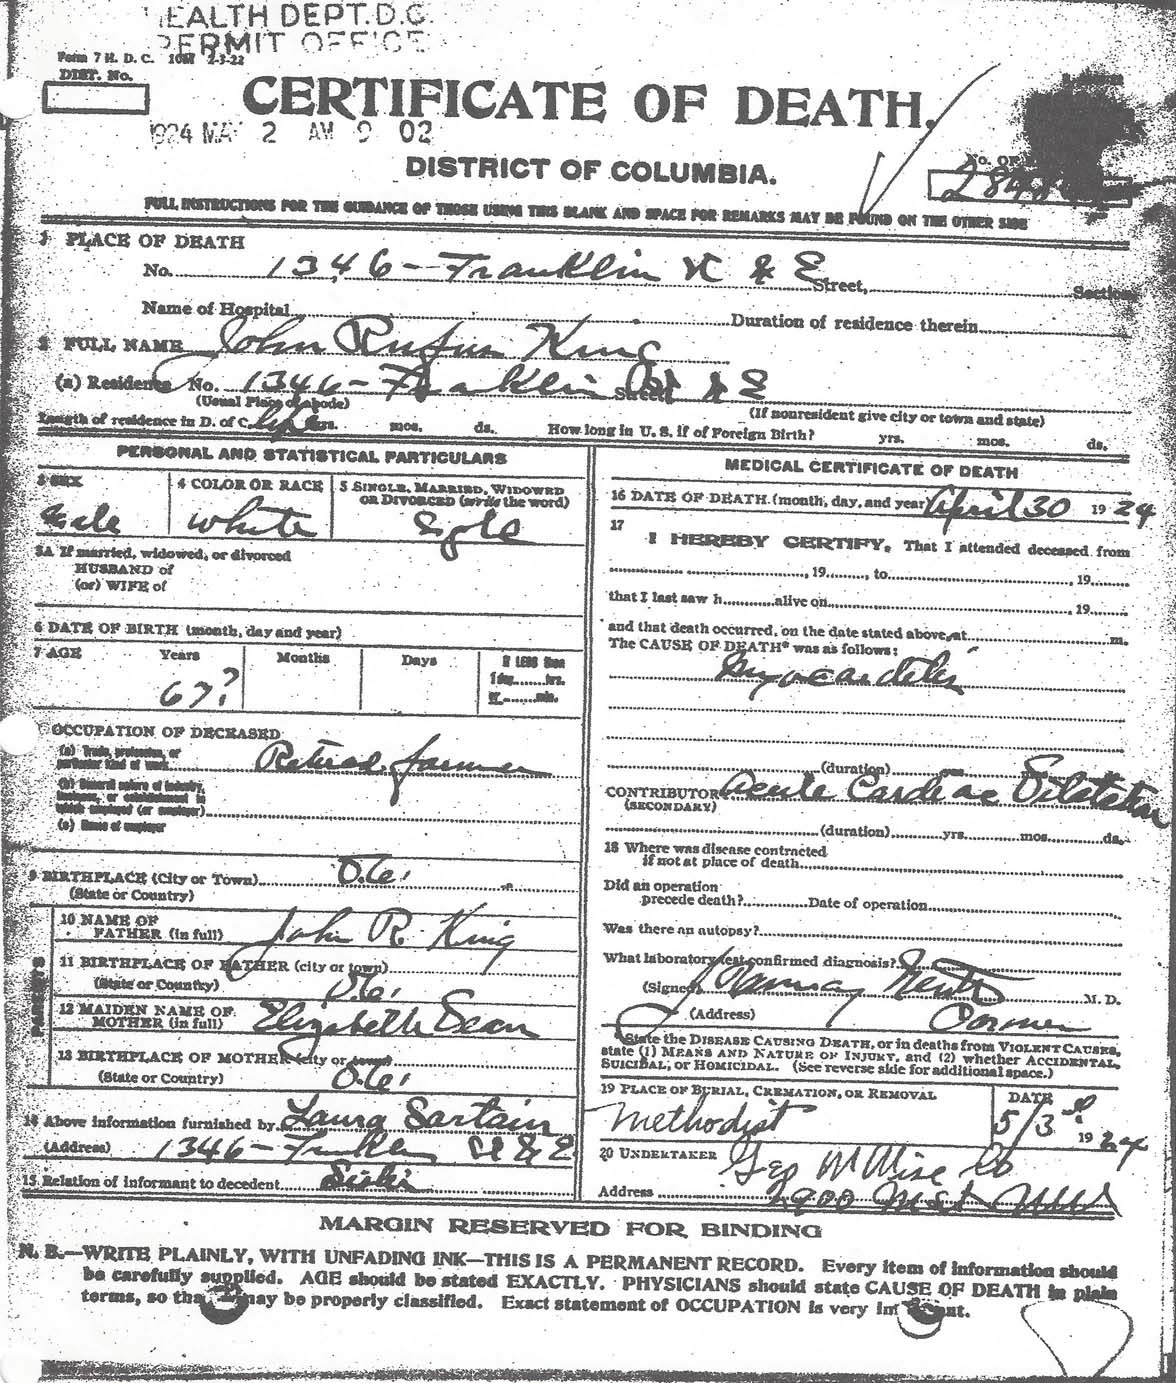 HEALTH DEPT. D.C.
PERMIT OFFICE
Form 7 H. D. C. 10M 2-3-22
DIST. No.
CERTIFICATE OF DEATH.
1924 MAY 2 AM 9 02
DISTRICT OF COLUMBIA.
No. OF
FULL INSTRUCTIONS FOR THE GUIDANCE OF THOSE USING THIS BLANK AND SPACE FOR REMARKS MAY BE FOUND ON THE OTHER SIDE
1 PLACE OF DEATH
No. 1346 - Franklin St N E Street, Section
Name of Hospital Duration of residence therein
2 FULL NAME John Rufus King
(a) Residence No. 1346 - Franklin St N E Street
(Usual Place of abode) (If nonresident give city or town and state)
Length of residence in D. of C. life yrs. mos. ds. How long in U. S. if of Foreign Birth? yrs. mos. ds.
PERSONAL AND STATISTICAL PARTICULARS
3 SEX 4 COLOR OR RACE 5 SINGLE, MARRIED, WIDOWED
OR DIVORCED (write the word)
Male White Sgle
5A If married, widowed, or divorced
HUSBAND of
(or) WIFE of
6 DATE OF BIRTH (month, day and year)
7 AGE Years Months Days If LESS than
1 day hrs.
or min.
67?
OCCUPATION OF DECEASED
(a) Trade, profession, or
particular kind of work Retired farmer
(b) General nature of industry,
business, or establishment in
which employed (or employer)
(c) Name of employer
9 BIRTHPLACE (City or Town) D.C.
(State or Country)
PARENTS
10 NAME OF
FATHER (in full) John R. King
11 BIRTHPLACE OF FATHER (city or town)
(State or Country) D.C.
12 MAIDEN NAME OF
MOTHER (in full) Elizabeth Dean
13 BIRTHPLACE OF MOTHER (city or town)
(State or Country) D.C.
14 Above information furnished by Laura Sartain
(Address) 1346 - Franklin St N E
15 Relation of informant to decedent Sister
MEDICAL CERTIFICATE OF DEATH
16 DATE OF DEATH (month, day, and year) April 30 1924
17
I HEREBY CERTIFY, That I attended deceased from
, 19 , to , 19
that I last saw h alive on , 19
and that death occurred, on the date stated above, at m.
The CAUSE OF DEATH* was as follows:
Myocarditis
(duration)
CONTRIBUTORY Acute Cardiac Dilatation
(SECONDARY)
(duration) yrs. mos. ds.
18 Where was disease contracted
if not at place of death
Did an operation
precede death? Date of operation
Was there an autopsy?
What laboratory test confirmed diagnosis?
(Signed) J Ramsay Nevitt M. D.
(Address) Coroner
*State the DISEASE CAUSING DEATH, or in deaths from VIOLENT CAUSES,
state (1) MEANS AND NATURE OF INJURY, and (2) whether ACCIDENTAL,
SUICIDAL, or HOMICIDAL. (See reverse side for additional space.)
19 PLACE OF BURIAL, CREMATION, OR REMOVAL DATE
Methodist 5/3 1924
20 UNDERTAKER Geo W Wise Co
Address 2900 M St NW
MARGIN RESERVED FOR BINDING
N. B.—WRITE PLAINLY, WITH UNFADING INK—THIS IS A PERMANENT RECORD. Every item of information should
be carefully supplied. AGE should be stated EXACTLY. PHYSICIANS should state CAUSE OF DEATH in plain
terms, so that may be properly classified. Exact statement of OCCUPATION is very important.